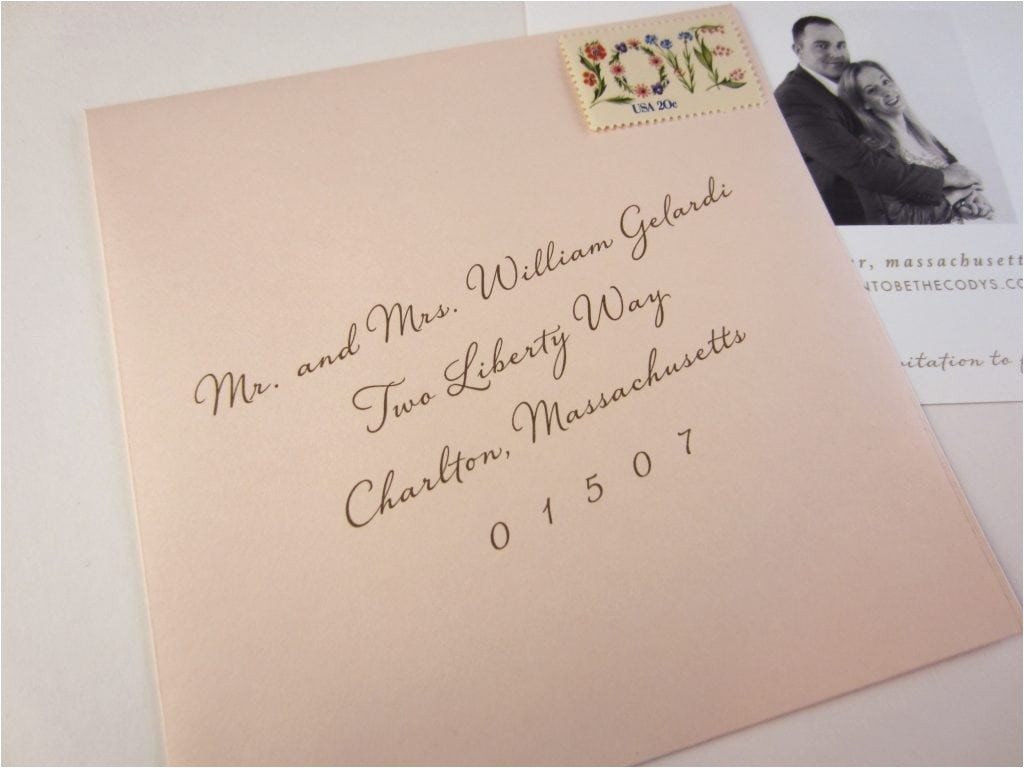 LOVE
USA 20c
Mr. and Mrs. William Gelardi
Two Liberty Way
Charlton, Massachusetts
01507
massachusett
NTOBETHECODYS.CO
to